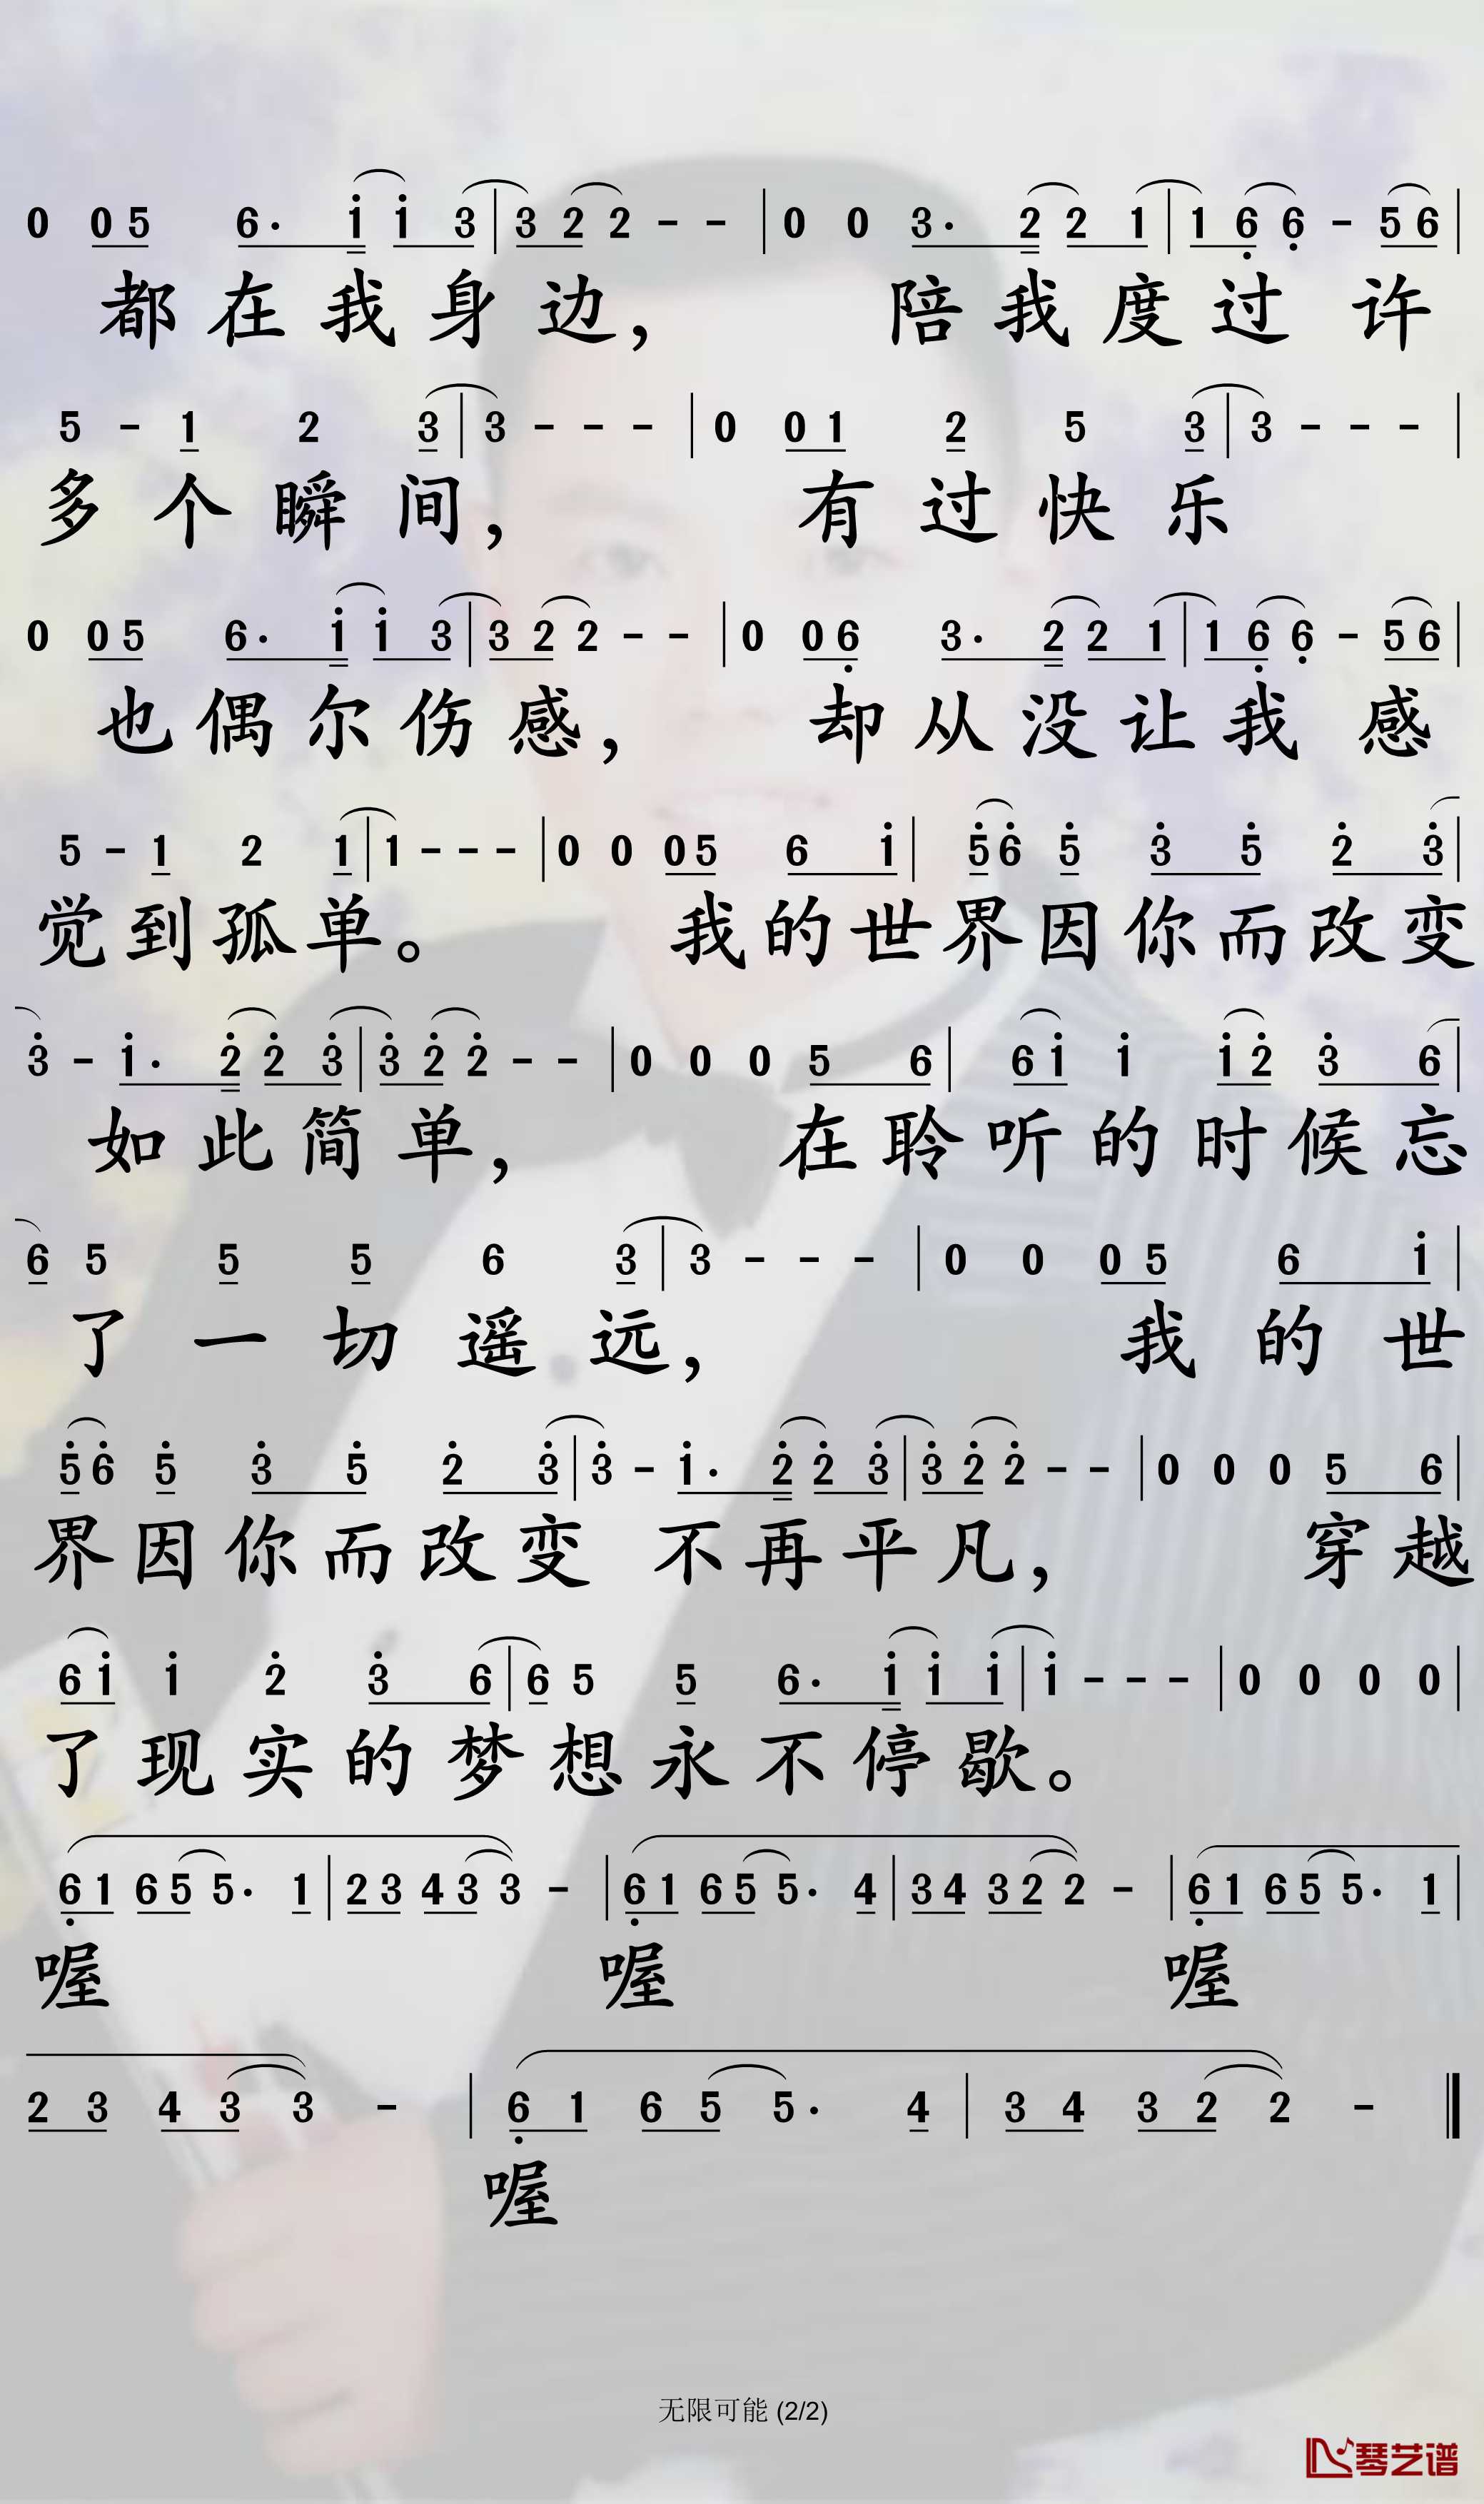 0 05 6· i i 3 | 3 2 2 - - | 0 0 3· 2 2 1 | 1 6 6 - 5 6 |
都在我身边， 陪我度过 许
5 - 1 2 3 | 3 - - - | 0 0 1 2 5 3 | 3 - - - |
多个瞬间， 有过快乐
0 05 6· i i 3 | 3 2 2 - - | 0 0 6 3· 2 2 1 | 1 6 6 - 5 6 |
也偶尔伤感， 却从没让我 感
5 - 1 2 1 | 1 - - - | 0 0 05 6 i | 5 6 5 3 5 2 3 |
觉到孤单。 我的世界因你而改变
3 - i· 2 2 3 | 3 2 2 - - | 0 0 0 5 6 | 6 i i i 2 3 6 |
如此简单， 在聆听的时候忘
6 5 5 5 6 3 | 3 - - - | 0 0 05 6 i |
了一切遥远， 我的世
5 6 5 3 5 2 3 | 3 - i· 2 2 3 | 3 2 2 - - | 0 0 0 5 6 |
界因你而改变 不再平凡， 穿越
6 i i 2 3 6 | 6 5 5 6· i i i | i - - - | 0 0 0 0 |
了现实的梦想永不停歇。
6 1 6 5 5· 1 | 2 3 4 3 3 - | 6 1 6 5 5· 4 | 3 4 3 2 2 - | 6 1 6 5 5· 1 |
喔 喔 喔
2 3 4 3 3 - | 6 1 6 5 5· 4 | 3 4 3 2 2 - ‖
喔
无限可能 (2/2)
琴艺谱